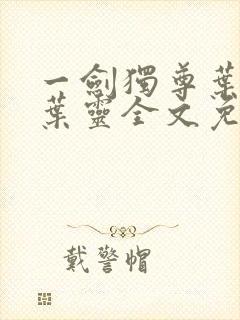 一劍獨尊葉
葉靈全文免
戴警帽